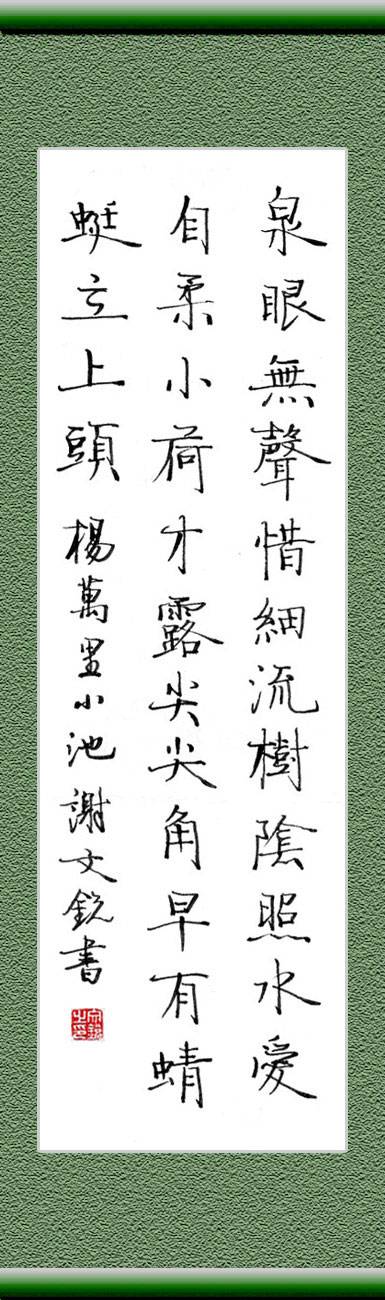 泉眼無聲惜細流樹陰照水愛
自柔小荷才露尖尖角早有蜻
蜓立上頭 楊萬里小池 謝文銳書